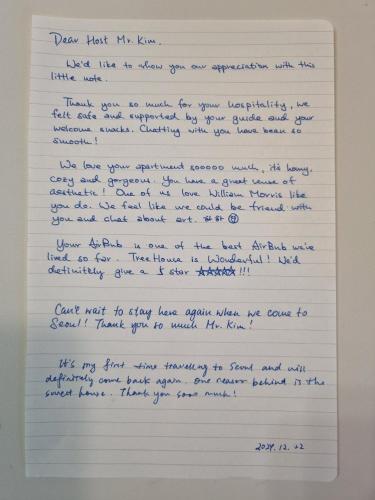 Dear Host Mr. Kim.
We'd like to show you our appreciation with this
little note.
Thank you so much for your hospitality, we
felt safe and supported by your guide and your
welcome snacks. Chatting with you have been so
smooth!
We love your apartment sooooo much, it's homy,
cozy and gorgeous. You have a great sense of
aesthetic! One of us love William Morris like
you do. We feel like we could be friend with
you and chat about art.
Your AirBnb is one of the best AirBnb we've
lived so far. TreeHouse is Wonderful! We'd
definitely give a 5 star ☆☆☆☆☆!!!
Can't wait to stay here again when we come to
Seoul! Thank you so much Mr. Kim!
It's my first time travelling to Seoul and will
definitely come back again. One reason behind is the
sweet house. Thank you sooo much!
2024.12.22